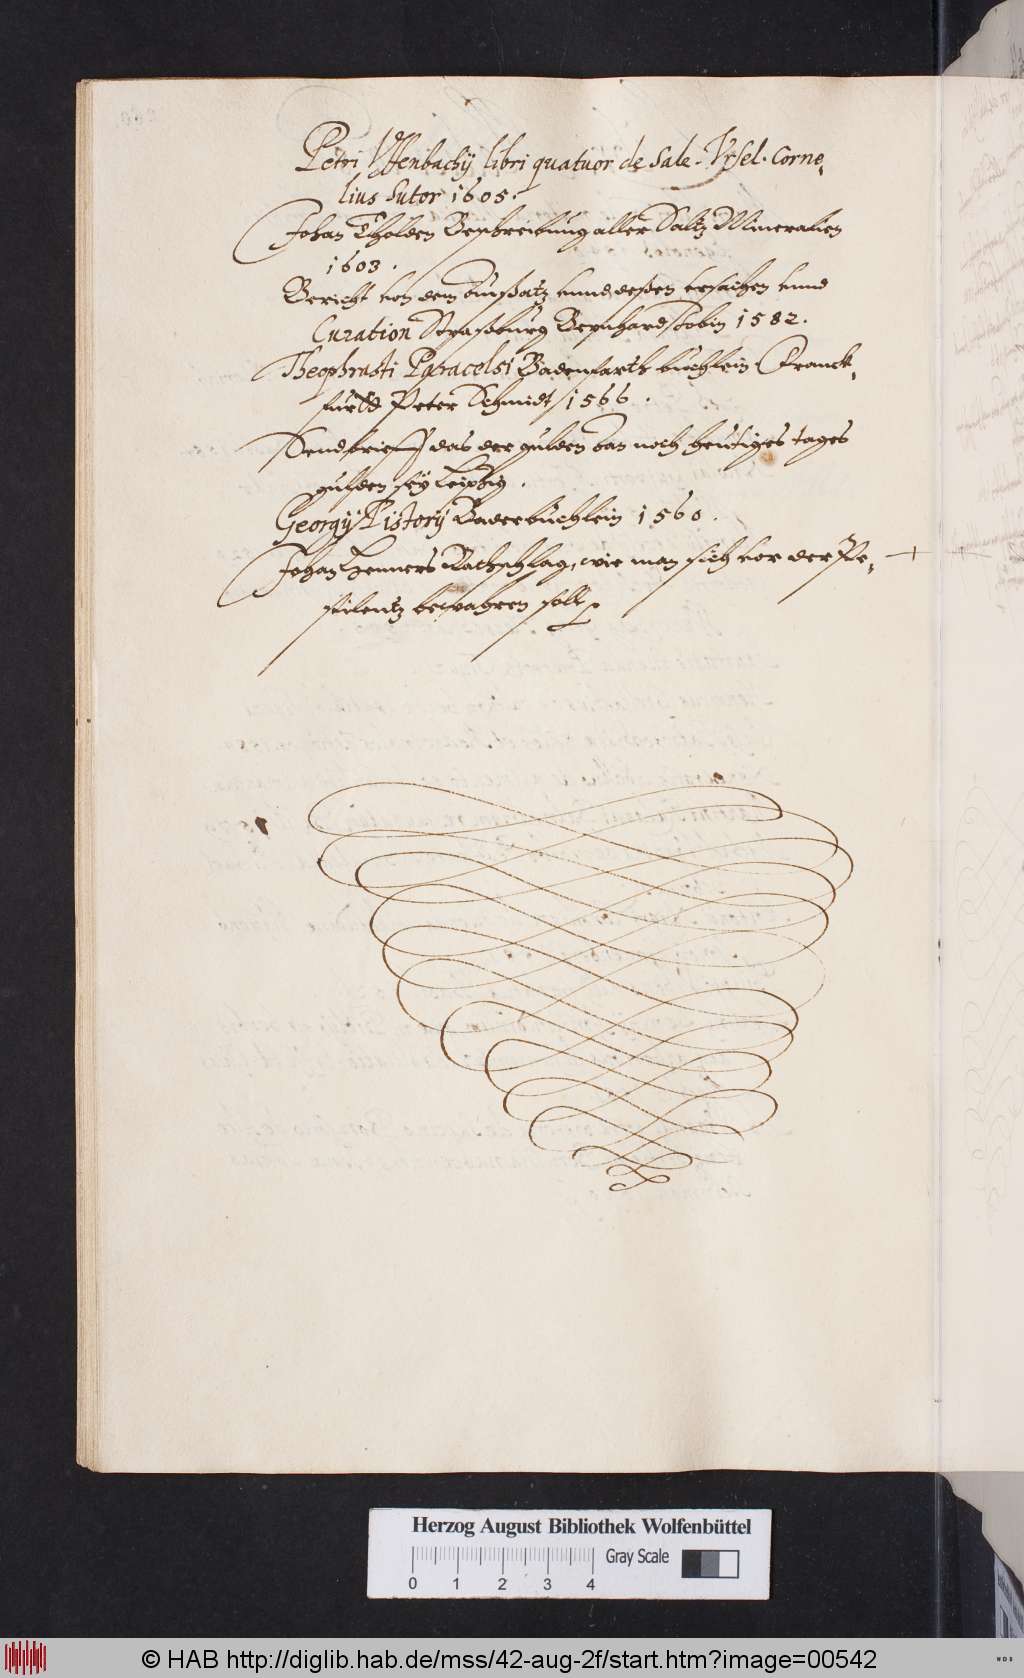 Petri Uffenbachÿ libri quatuor de Sale. Ursel. Corne,
lius Sutor 1605.
Johan Tholden Beschreibung aller Saltz Mineralien
1603.
Bericht von dem Außsatz unnd deßen ursachen unnd
Curation Straßburg Bernhard Jobin 1582.
Theophrasti Paracelsi Badenfarth büchlein Franck,
furdt Peter Schmidt 1566.
Sendbrieff das der gulden ban noch heutiges tages
gulden seÿ Leipzig.
Georgÿ Pistorÿ Baderbüchlein 1560.
Johan Henners Rathschlag, wie man sich vor der Pe,
stilentz bewahren soll
Herzog August Bibliothek Wolfenbüttel
Gray Scale
0 1 2 3 4
© HAB http://diglib.hab.de/mss/42-aug-2f/start.htm?image=00542